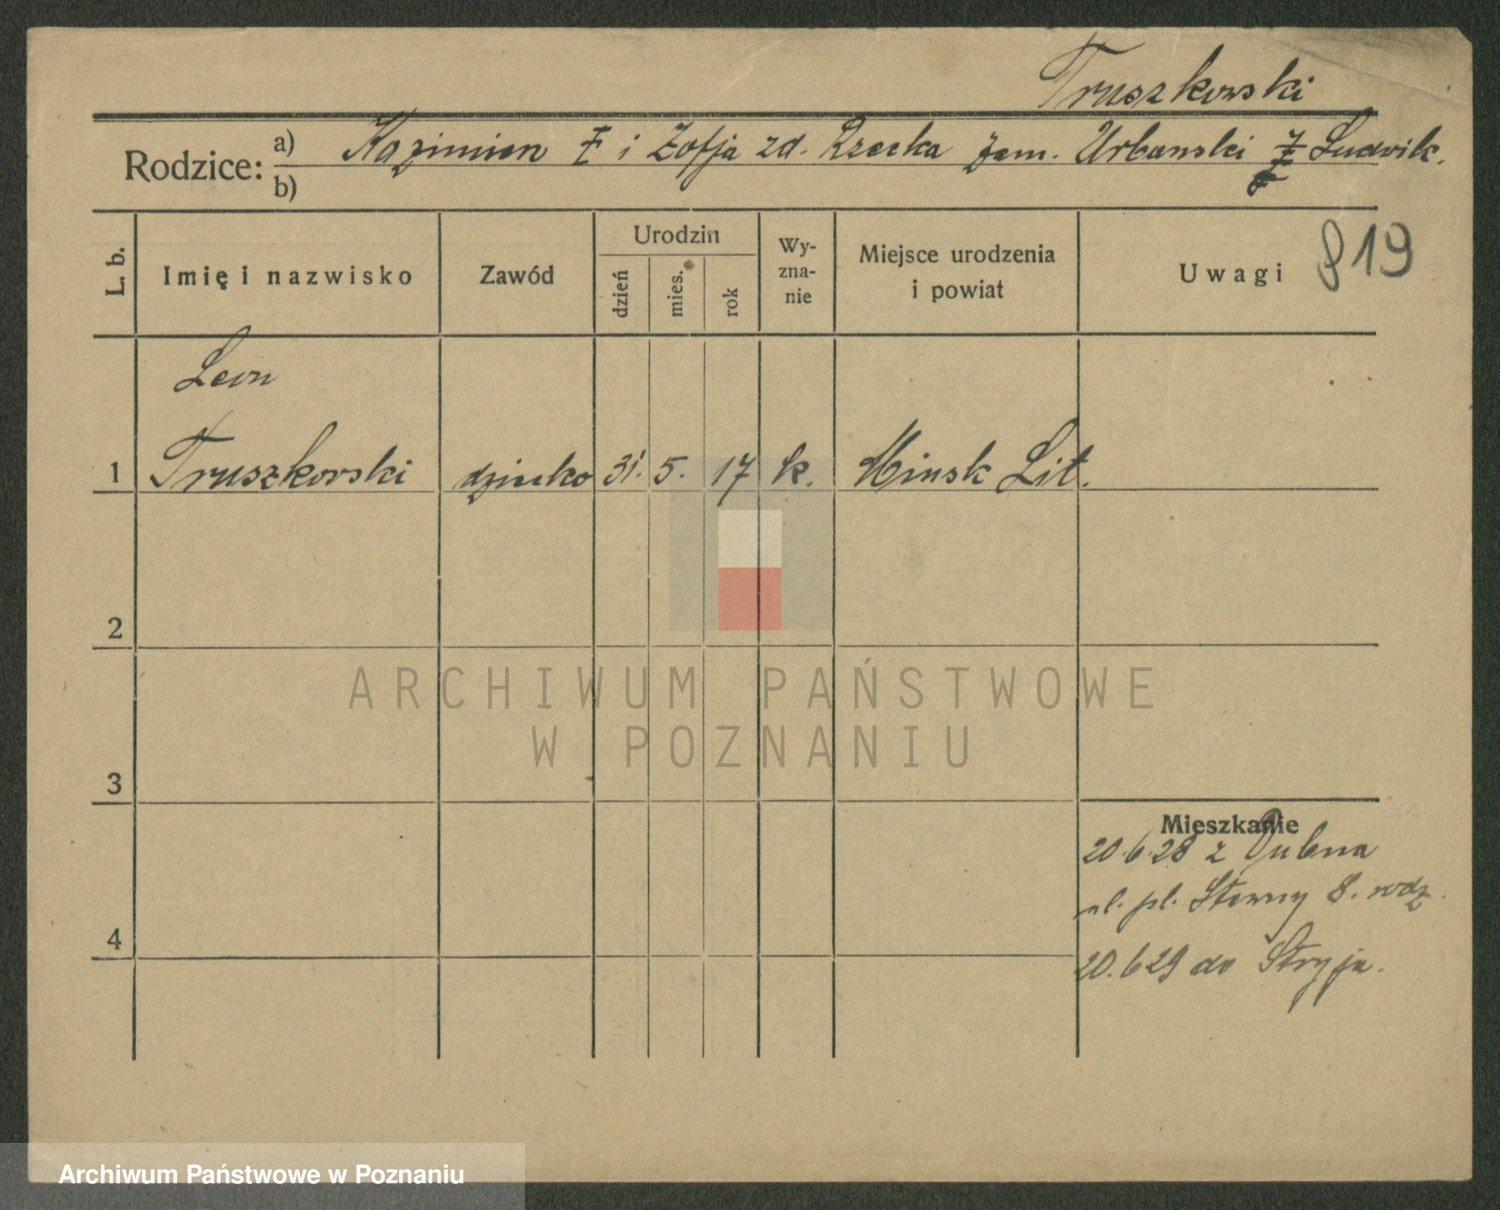 Truszkowski
Rodzice: a) Kazimierz i Zofja zd. Rzecka zam. Urbanski Ludwik.
b)
L. b. Imię i nazwisko Zawód Urodzin dzień mies. rok Wy-zna-nie Miejsce urodzenia i powiat Uwagi 819
Leon
1 Truszkowski dziecko 31. 5. 17 k. Minsk Lit.
2
ARCHIWUM PAŃSTWOWE
W POZNANIU
3
Mieszkanie
20.6.28 z Dubna
pl. 8. rodz.
4
20.6.29 do Stryja.
Archiwum Państwowe w Poznaniu